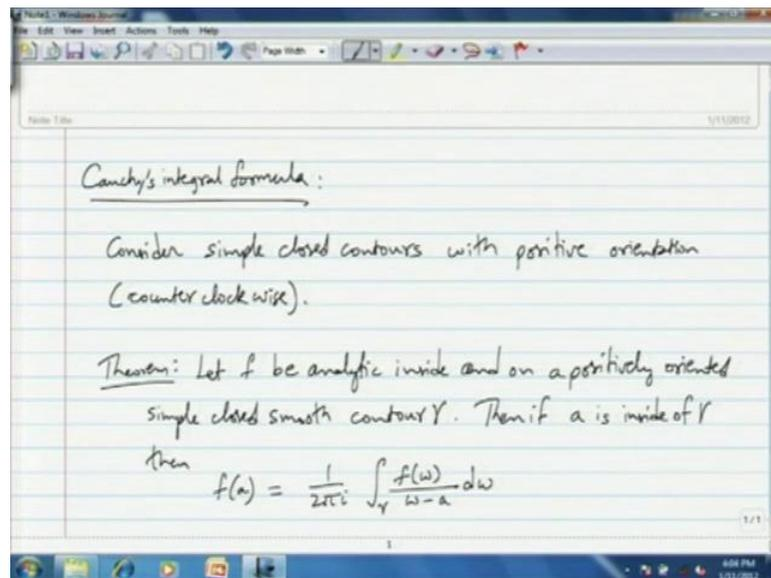 Note1 - Windows Journal
File Edit View Insert Actions Tools Help
Page Width
Note Title
1/11/2012
Cauchy's integral formula:
Consider simple closed contours with positive orientation
(counter clock wise).
Theorem: Let f be analytic inside and on a positively oriented
simple closed smooth contour γ. Then if a is inside of γ
then
f(a) = 1/2πi ∫_γ f(w)/w-a dw
1/1
1
6:04 PM
1/11/2012